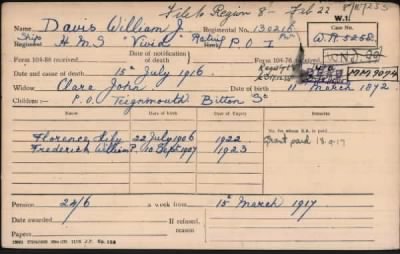 File to Region 8 Feb 22
8/11/255
W.1.
Name Davis William J. Regimental No. 130216 Por
Case No.
W.R. 5258
Ships Regiment H.M.S Vivid Rating P.O I
Date of notification of death
Form 104-88 received Form 104-76
Date and cause of death 15th July 1916
Widow Clare John 11 March 1872
Children:— P.O. Teignmouth Bitton St
Date of birth Date of Expiry
Florence Lily 22 July 1906 1922
Frederick William P. 10 Sept 1907 1923
To whom S.A. is paid
Grant paid 18.9.17
Pension 24/6 a week from 15th March 1917
Date awarded If refused, reason
Papers